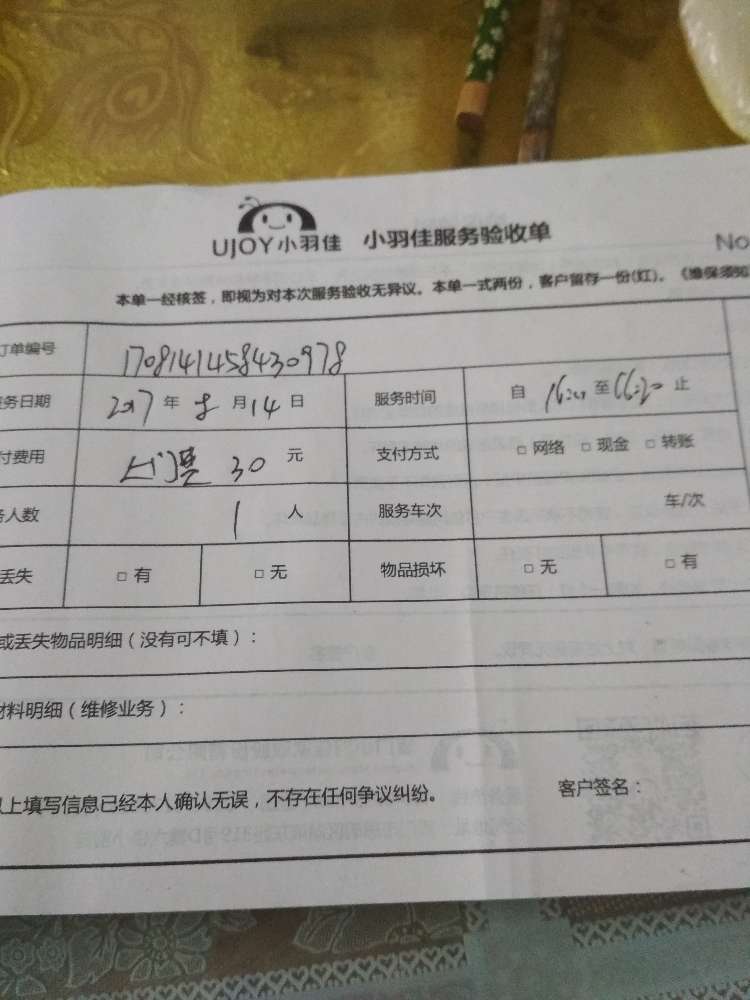 UJOY小羽佳 小羽佳服务验收单
No
本单一经核签，即视为对本次服务验收无异议。本单一式两份，客户留存一份(红)。《维保须知
订单编号 1708141458430978
服务日期 2017年8月14日 服务时间 自 至 止
付费用 上门费 30 元 支付方式 □ 网络 □ 现金 □ 转账
务人数 1 人 服务车次 车/次
丢失 □ 有 □ 无 物品损坏 □ 无 □ 有
或丢失物品明细（没有可不填）：
材料明细（维修业务）：
以上填写信息已经本人确认无误，不存在任何争议纠纷。 客户签名：